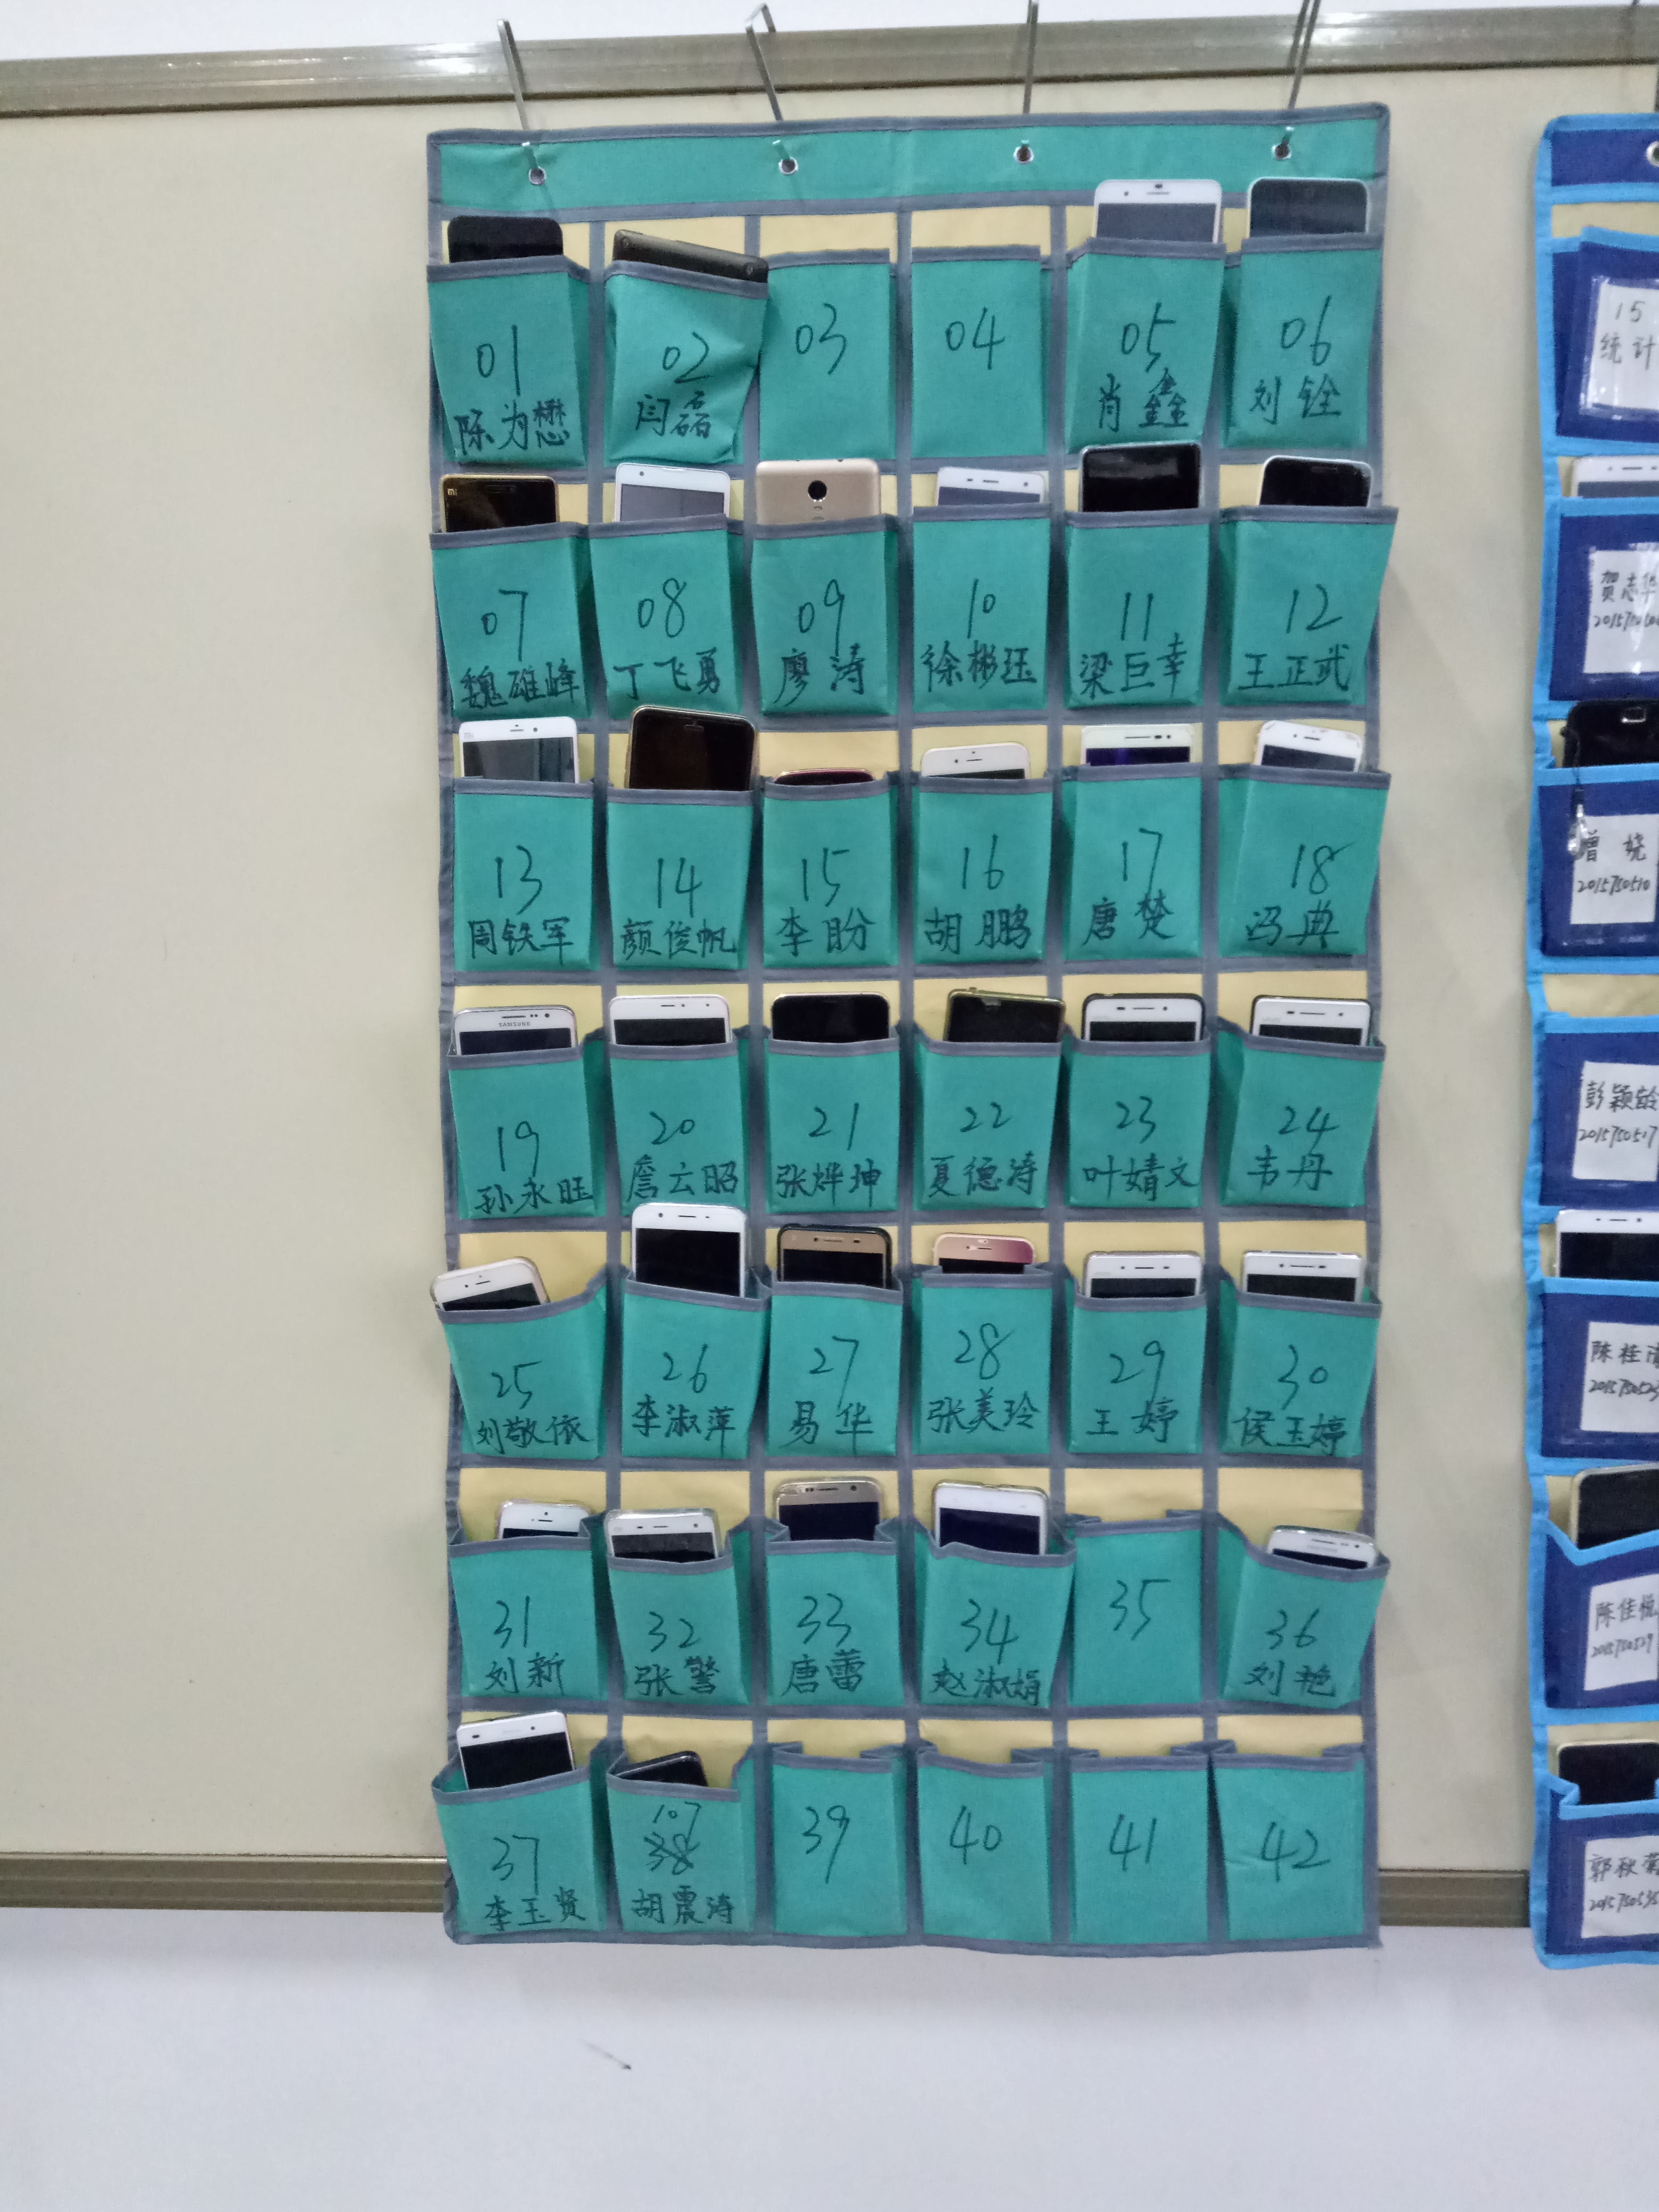 01
陈为懋
02
闫磊
03
04
05
肖鑫
06
刘铨
07
魏雄峰
08
丁飞勇
09
廖涛
10
徐彬珏
11
梁巨幸
12
王正武
13
周铁军
14
颜俊帆
15
李盼
16
胡鹏
17
唐楚
18
冯典
19
孙永旺
20
詹云昭
21
张烨坤
22
夏德涛
23
叶婧文
24
韦丹
25
刘敬依
26
李淑萍
27
易华
28
张美玲
29
王婷
30
侯玉婷
31
刘新
32
张警
33
唐蕾
34
赵淑娟
35
36
刘艳
37
李玉贤
107
38
胡震涛
39
40
41
42
SAMSUNG
15
统计
贺志华
曾娆
2015750510
彭颖龄
2015750517
陈桂
陈佳
2015750529
郭秋菊